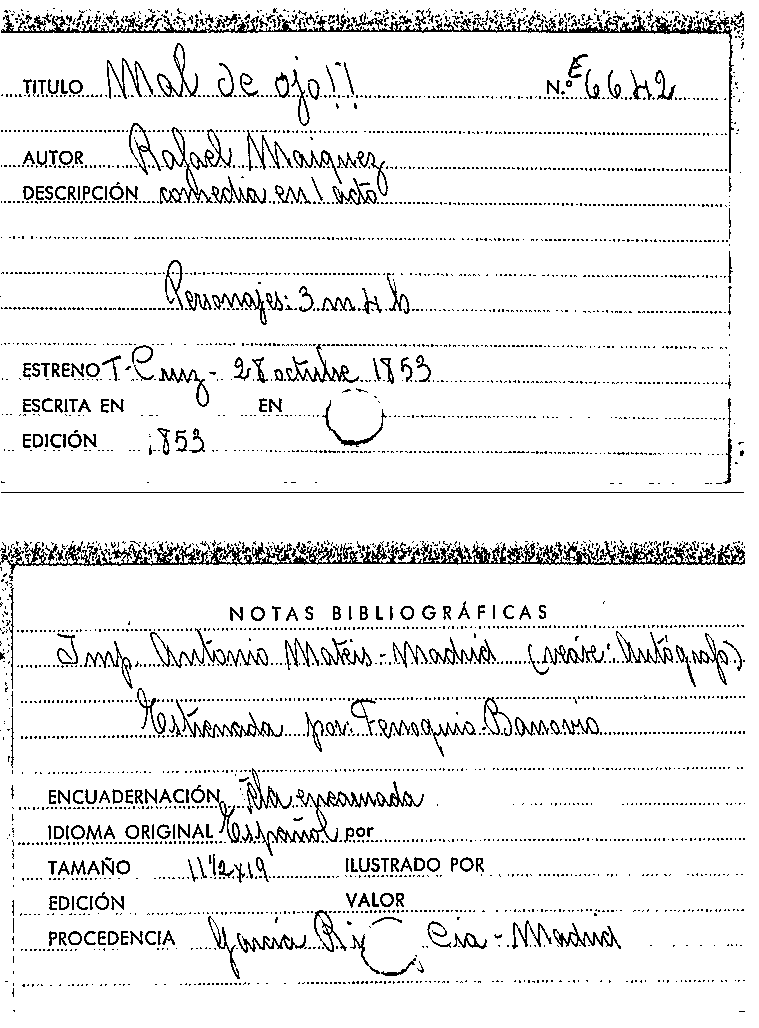 TITULO Mal de ojo!! N.º E 6642
AUTOR Rafael Maiquez
DESCRIPCIÓN comedia en 1 acto
Personajes: 3 m 4 h
ESTRENO T. Cruz - 28 octubre 1853
ESCRITA EN EN
EDICIÓN 1853
NOTAS BIBLIOGRÁFICAS
Imp. Antonio Mateis - Madrid (véase: Autógrafo)
Estrenada por:
ENCUADERNACIÓN Tela encarnada
IDIOMA ORIGINAL Español por
TAMAÑO 11 1/2 x 19 ILUSTRADO POR
EDICIÓN VALOR
PROCEDENCIA García Ri Cia - Madrid